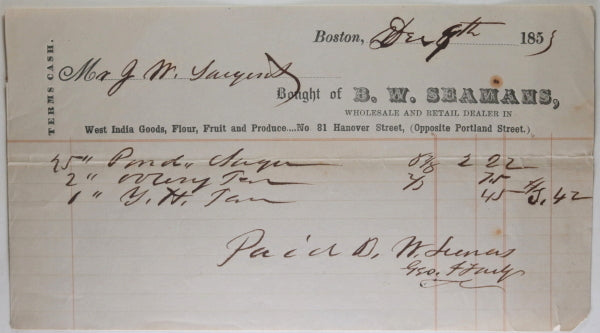 TERMS CASH.
Boston, Dec 9th 1855
Mr J. W. Sargent
Bought of B. W. SEAMANS,
WHOLESALE AND RETAIL DEALER IN
West India Goods, Flour, Fruit and Produce....No 81 Hanover Street, (Opposite Portland Street.)
25 " Pond, Sugar 2 22
2 " Tea 75
1 " Y. H. Tea 45 3.42
Paid B. W. Seamans
Geo.